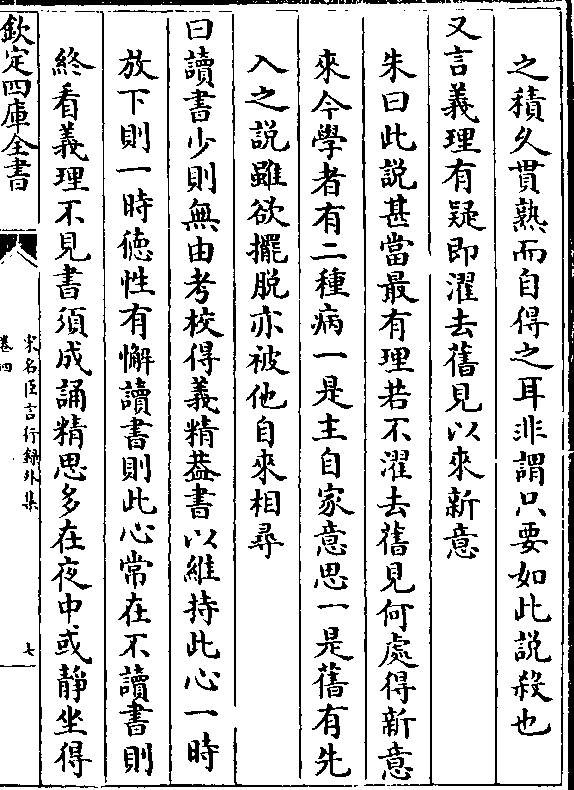 之積久貫熟而自得之耳非謂只要如此説殺也
又言義理有疑即濯去舊見以來新意
朱曰此説甚當最有理若不濯去舊見何處得新意
來今學者有二種病一是主自家意思一是舊有先
入之説雖欲擺脱亦被他自來相尋
曰讀書少則無由考校得義精葢書以維持此心一時
放下則一時徳性有懈讀書則此心常在不讀書則
終看義理不見書須成誦精思多在夜中或靜坐得
欽定四庫全書
宋名臣言行録外集
卷四
七